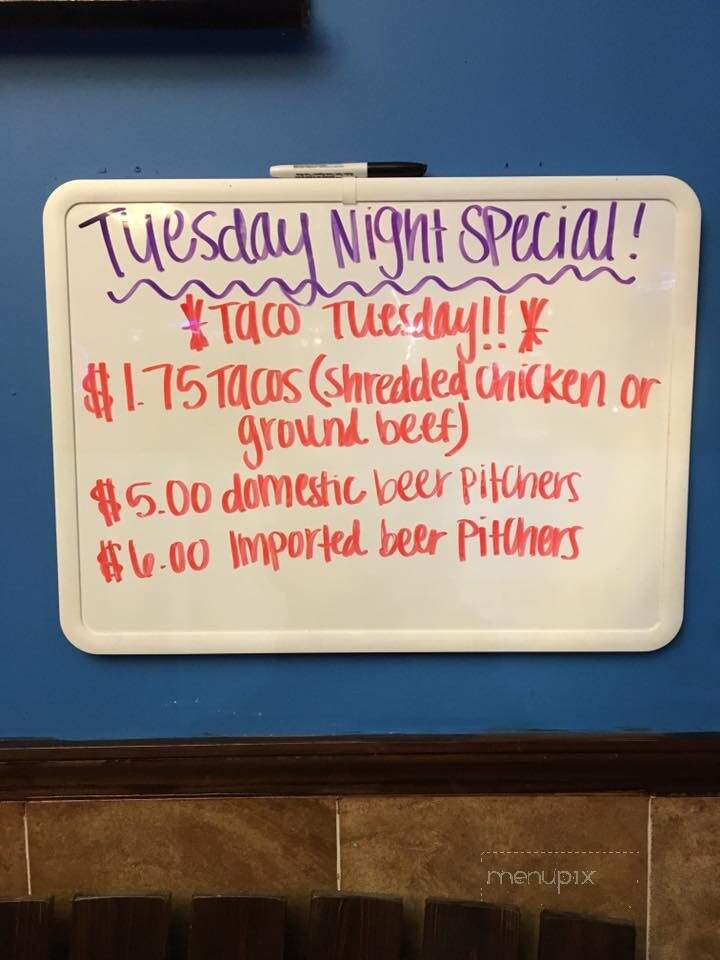 Tuesday Night Special!
Taco Tuesday!!
$1.75 Tacos (shredded chicken or
ground beef)
$5.00 domestic beer pitchers
$6.00 Imported beer Pitchers
menupix